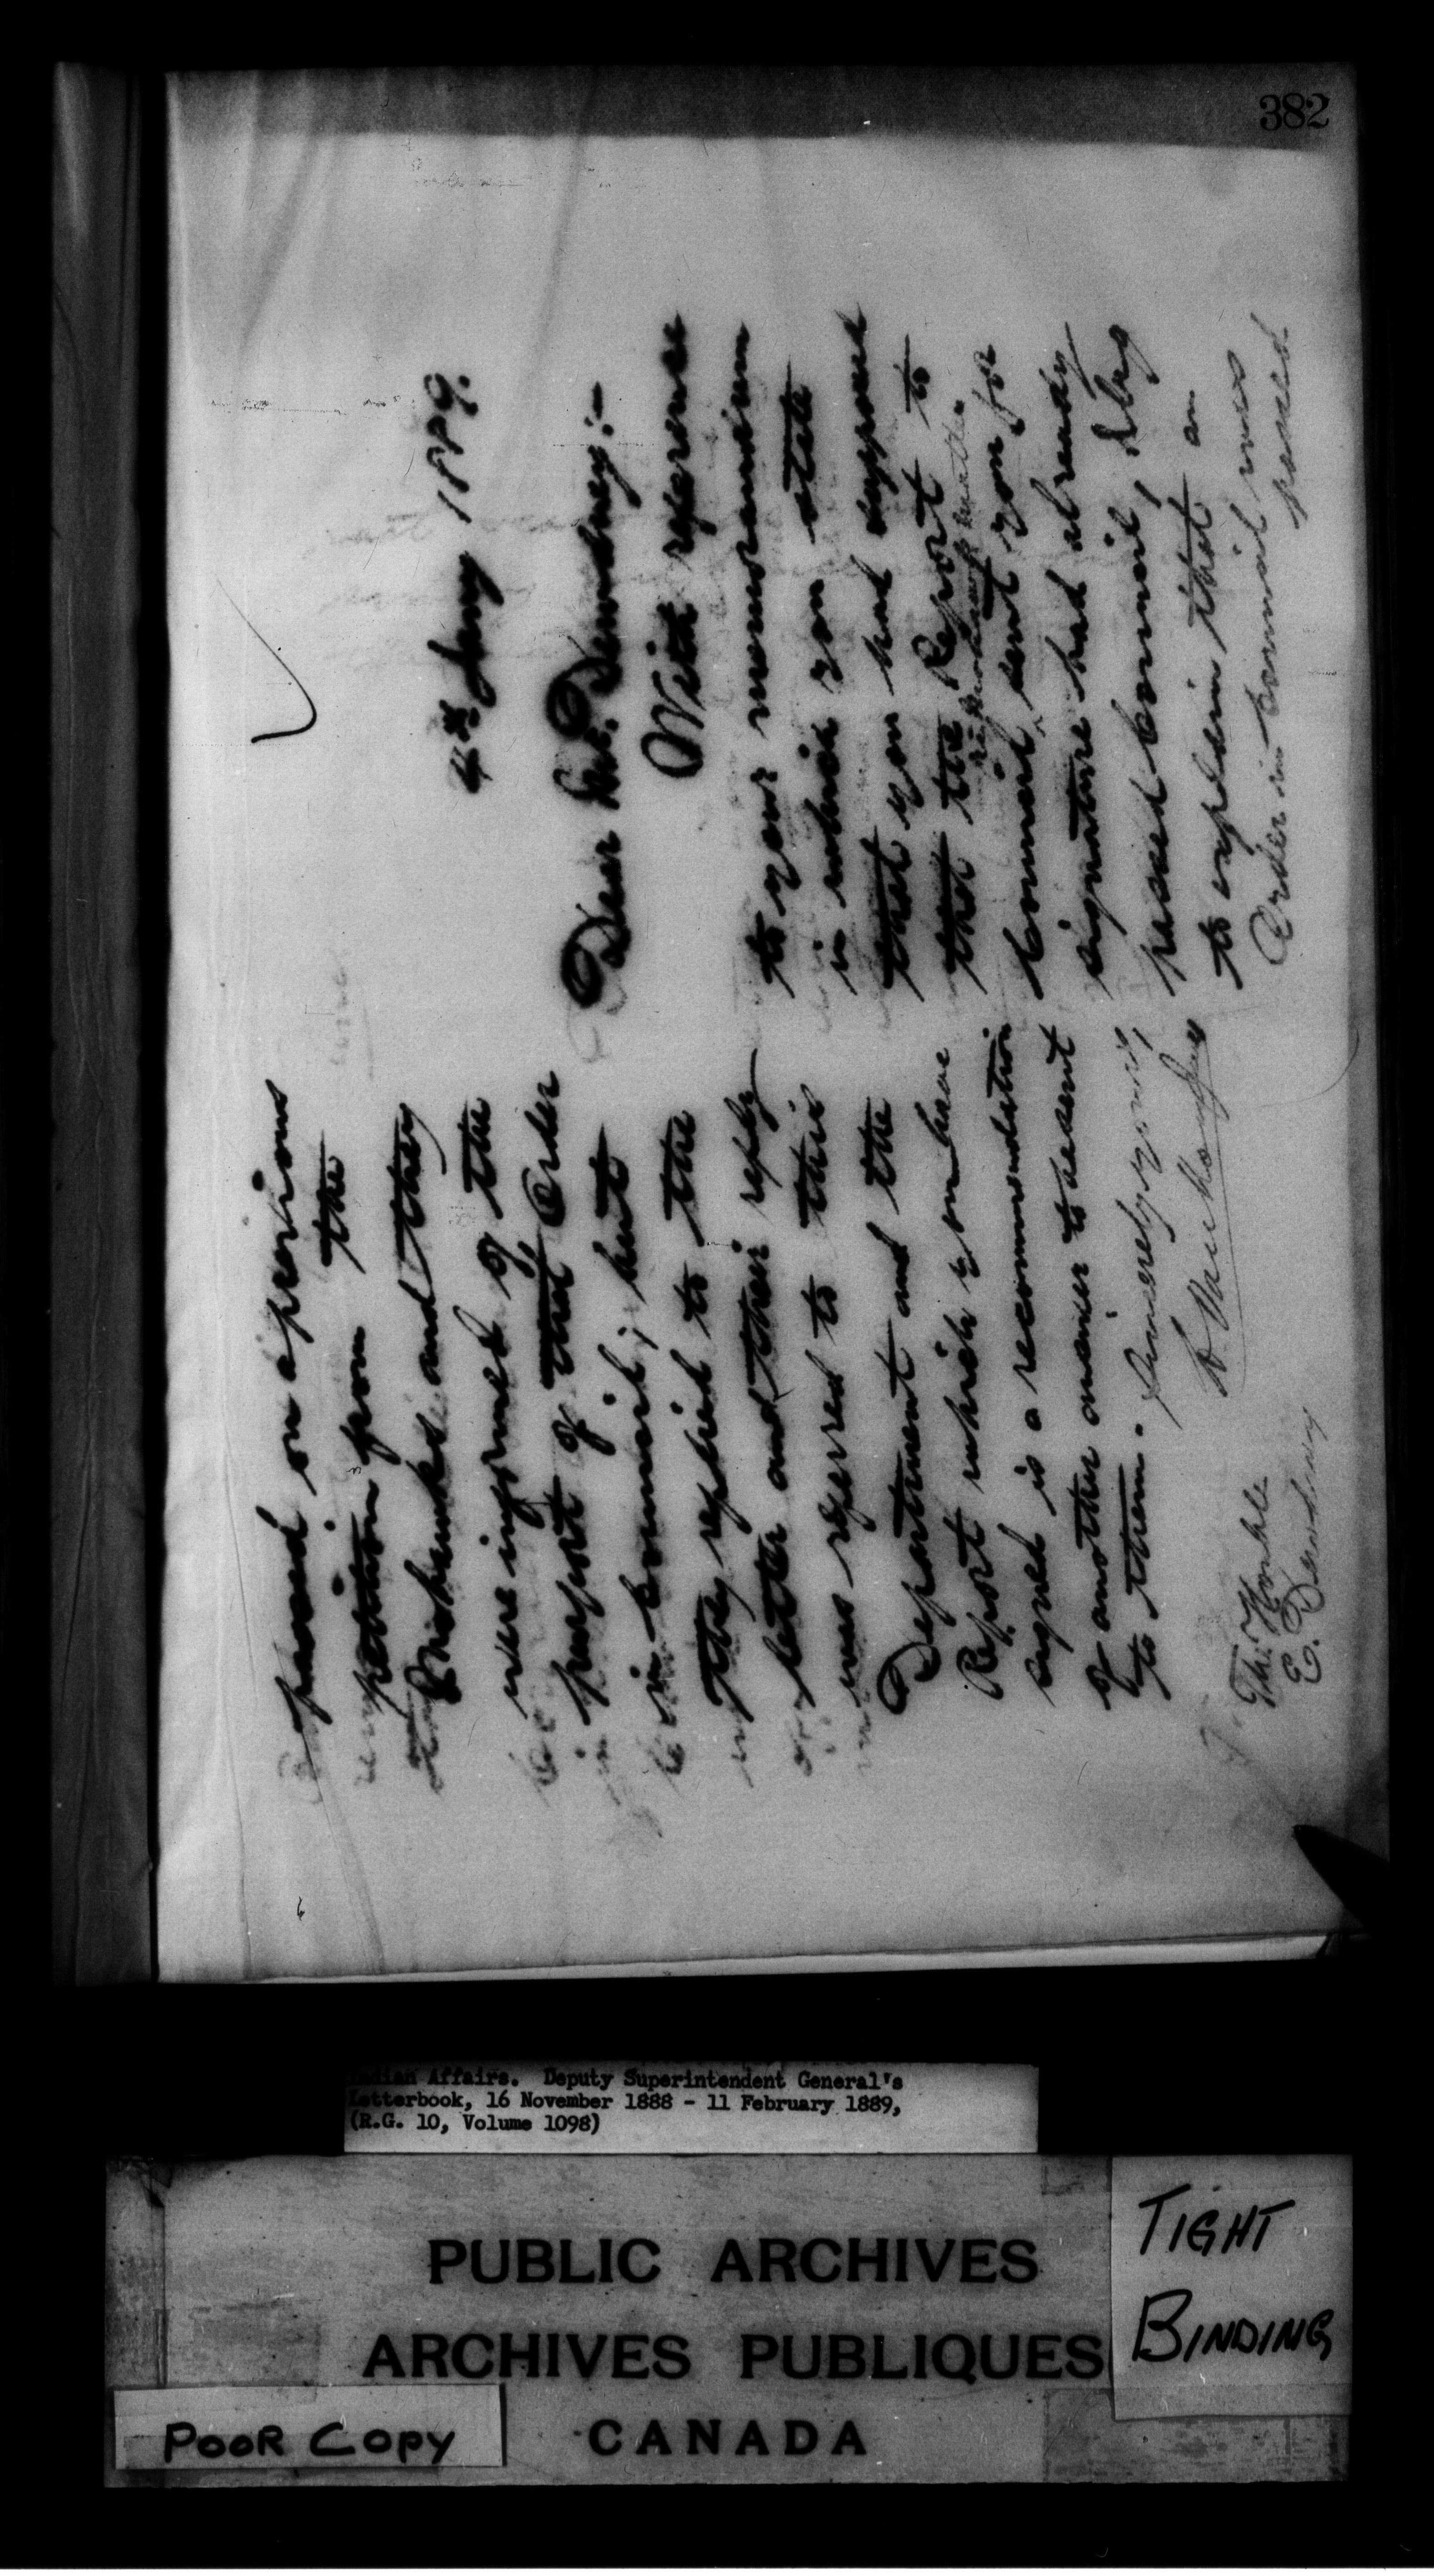 382
4th Jany 1889.
Dear Mr. Dewdney:-
With reference
to your memorandum
in which you state
that you had supposed
that the Report to
re Mohawk matter
Council, sent you for
signature had already
passed Council, I beg
to explain that an
Order in Council was
passed
passed on a previous
petition from the
Mohawks and they
were informed of the
purport of that Order
in Council; but
they replied to the
letter and their reply
was referred to this
Department and the
Report which you have
signed is a recommendation
of another answer to be sent
to them.
Sincerely yours,
L. VanKoughnet
The Honble
E. Dewdney
Indian Affairs. Deputy Superintendent General's
Letterbook, 16 November 1888 - 11 February 1889,
(R.G. 10, Volume 1098)
PUBLIC ARCHIVES
ARCHIVES PUBLIQUES
CANADA
TIGHT
BINDING
POOR COPY